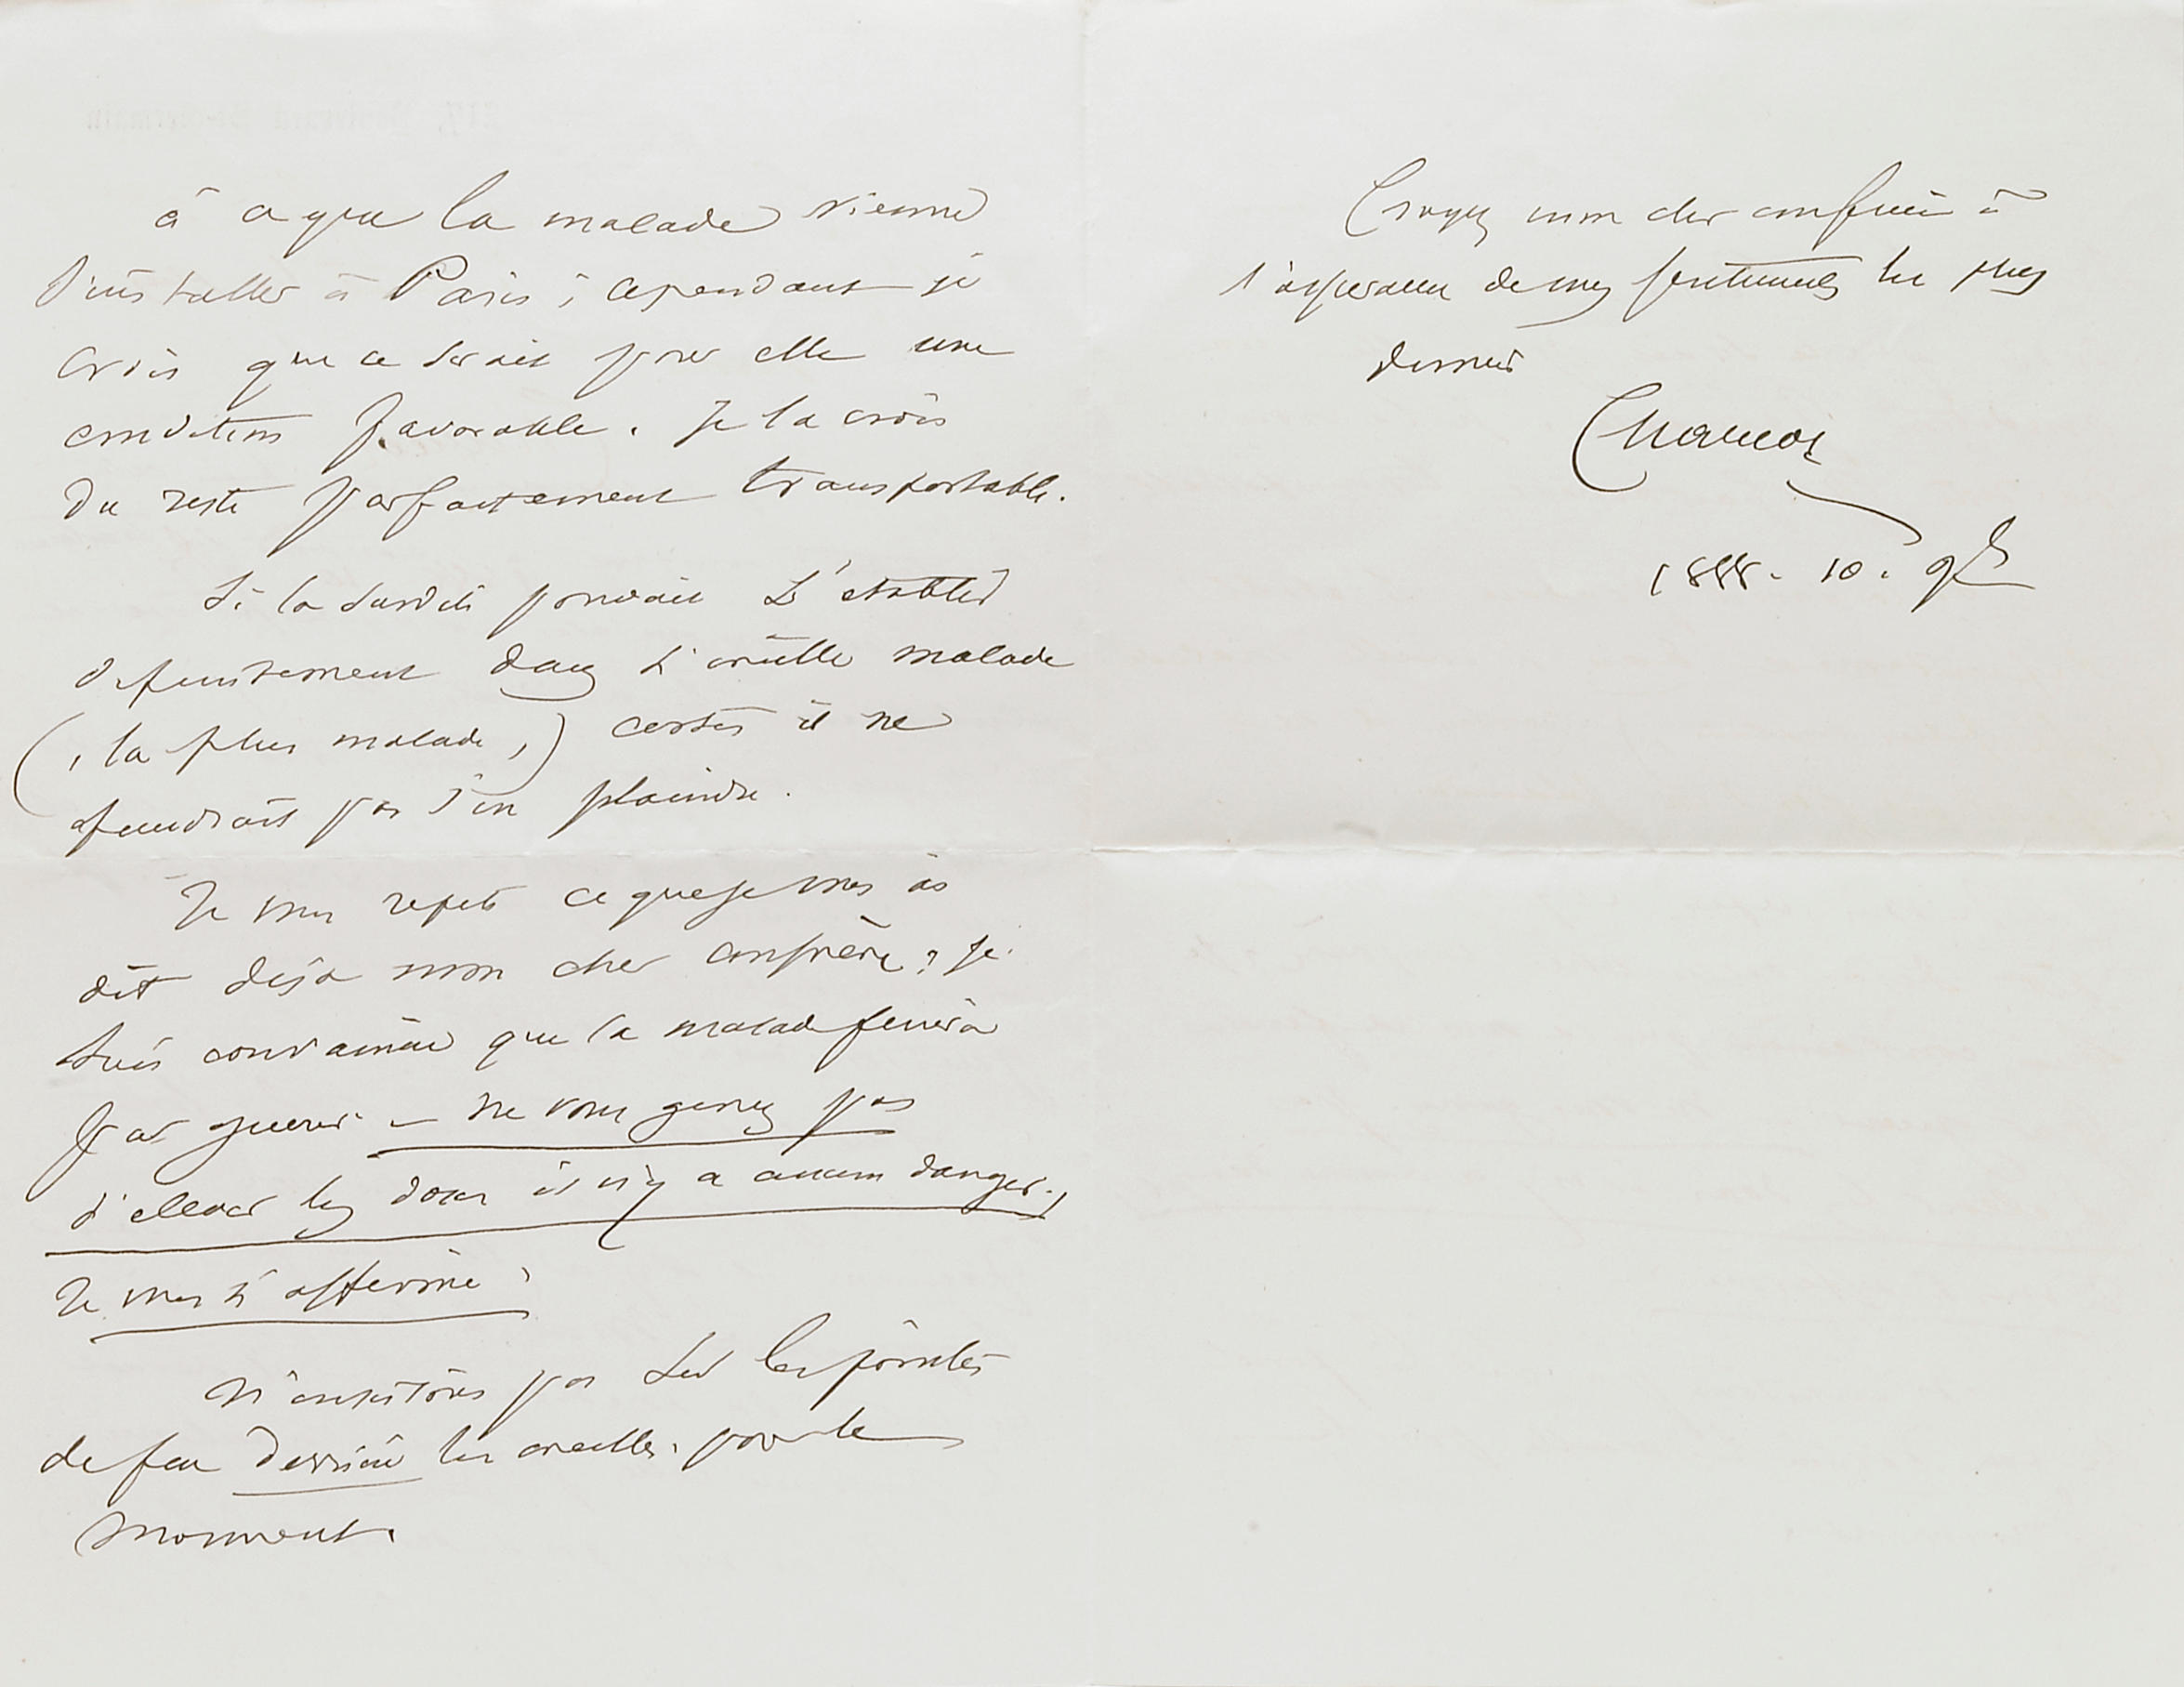 à ce que la malade vienne
s'installer à Paris ; cependant je
crois que ce serait pour elle une
condition favorable. Je la crois
du reste parfaitement transportable.
Si la surdité pouvait s'établir
définitivement dans l'oreille malade
(, la plus malade,) certes il ne
faudrait pas s'en plaindre.
Je vous répète ce que je vous ai
dit déjà mon cher confrère ; je
suis convaincu que la malade finira
par guérir – ne vous genez pas
d'elever les doses il n'y a aucun danger.,
Je vous l'affirme.
N'insistons pas sur les pointes
de feu derrière les oreilles. pour le
moment.
Croyez mon cher confrère à
l'assurance de mes sentiments les plus
Charcot
1888. 10.